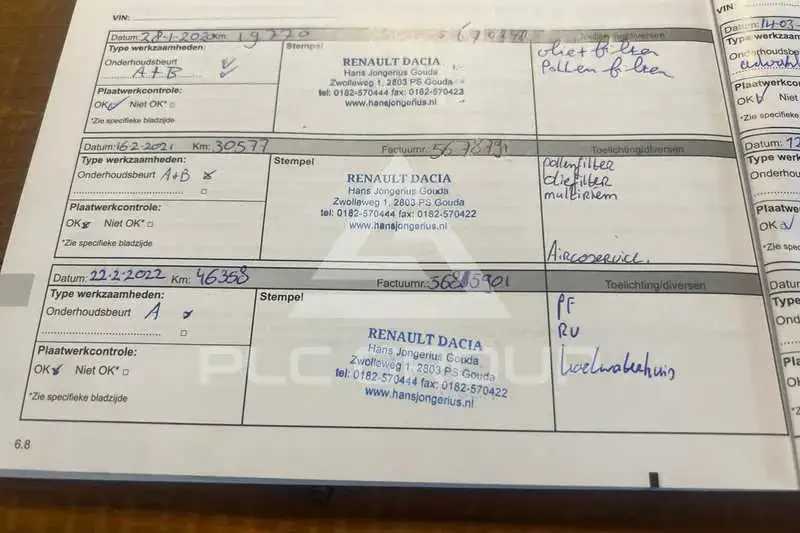 VIN:
Datum: 28-1-2020 Km: 19220
Type werkzaamheden:
Onderhoudsbeurt
A+B
Plaatwerkcontrole:
OK Niet OK*
*Zie specifieke bladzijde
Stempel
RENAULT DACIA
Hans Jongerius Gouda
Zwolleweg 1, 2803 PS Gouda
tel: 0182-570444 fax: 0182-570422
www.hansjongerius.nl
Toelichting/diversen
oliefilter
Pollen filter
Datum: 16-2-2021 Km: 30577 Factuurnr.: 5678791
Type werkzaamheden:
Onderhoudsbeurt A+B
Plaatwerkcontrole:
OK Niet OK
*Zie specifieke bladzijde
Stempel
RENAULT DACIA
Hans Jongerius Gouda
Zwolleweg 1, 2803 PS Gouda
tel: 0182-570444 fax: 0182-570422
www.hansjongerius.nl
Toelichting/diversen
pollenfilter
oliefilter
multiriem
Aircoservice.
Datum: 22-2-2022 Km: 46358 Factuurnr.:
Type werkzaamheden:
Onderhoudsbeurt A
Plaatwerkcontrole:
OK Niet OK*
*Zie specifieke bladzijde
Stempel
RENAULT DACIA
Hans Jongerius Gouda
Zwolleweg 1, 2803 PS Gouda
tel: 0182-570444 fax: 0182-570422
www.hansjongerius.nl
Toelichting/diversen
PF
RV
6.8
PLC GROUP